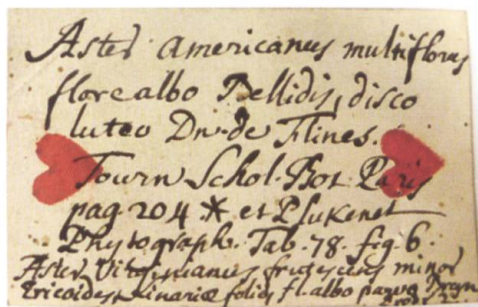 Aster americanus multiflorus
flore albo Bellidis, disco
luteo Dn. de Flines.
Tourn Schol. Bot. Paris
pag. 204 * et Plukenet
Phytograph. Tab. 78. fig. 6.
Aster Virginianus fruticosus minor
Ericoides Linariæ foliis fl. albo parvo